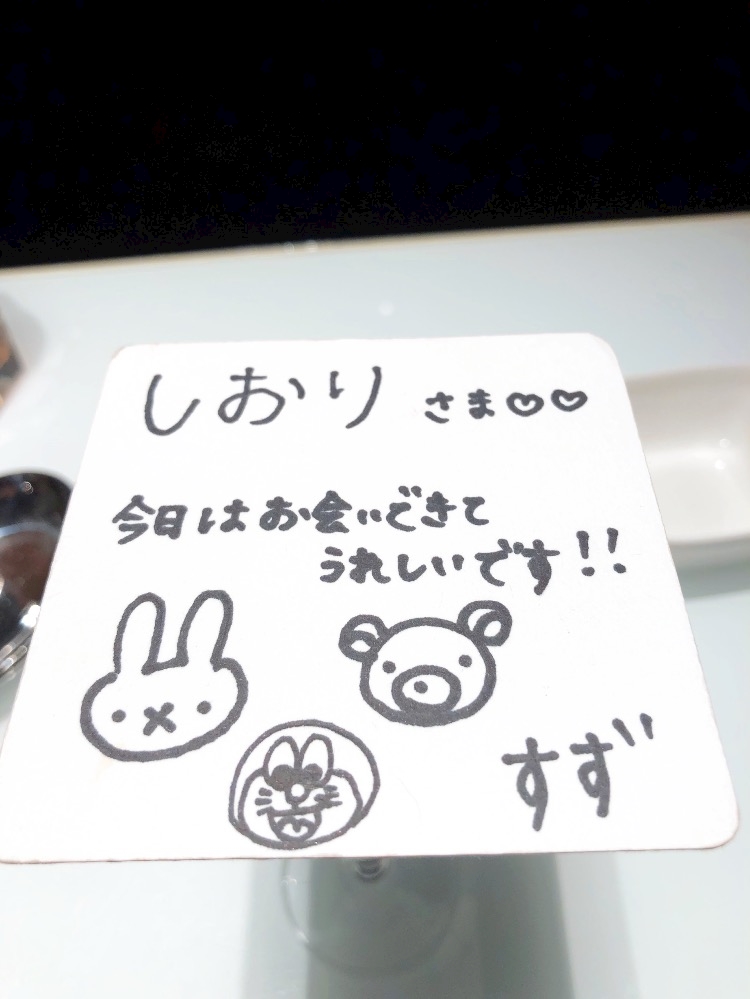 しおり さま♡♡
今日はお会いできて
うれしいです!!
すず